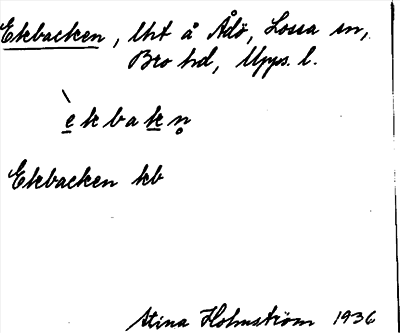 Ekbacken, lht å Ådö, Lossa sn,
Bro hd, Upps. l.
èkbakn̥
Ekbacken kb
Stina Holmström 1936